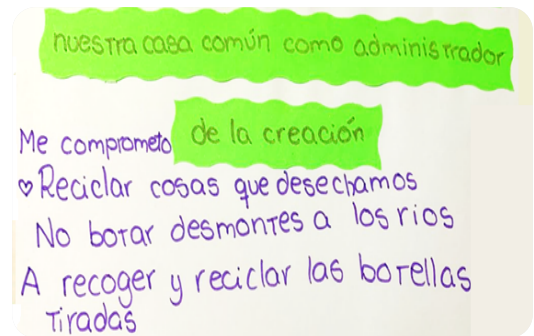 nuestra casa común como administrador
de la creación
Me comprometo
♡ Reciclar cosas que desechamos
No botar desmontes a los rios
A recoger y reciclar las botellas
tiradas